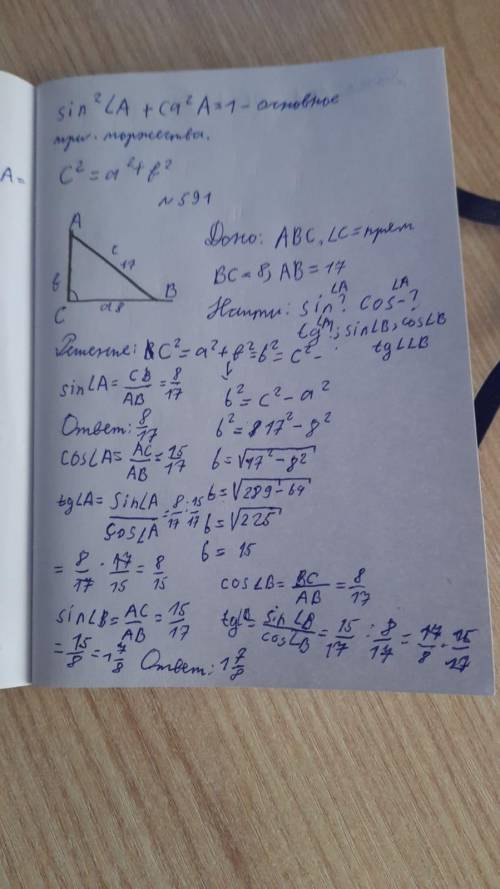 sin²∠A + ca²A=1 – основное
триг. торжества.
A=
c² = a² + b²
№591
A
c
17
b
C
a 8
B
Дано: ABC, ∠C = прям
BC = 8, AB = 17
Найти: sin∠A? cos∠A-?
tg∠A; sin∠B; cos∠B
tg∠B
Решение: C² = a² + b² = b² = c² -
sin∠A = CB/AB = 8/17
b² = c² - a²
Ответ: 8/17
b² = 17² - 8²
cos∠A = AC/AB = 15/17
b = √17² - 8²
tg∠A = sin∠A/cos∠A = 8/17 : 15/17
b = √289-64
b = √225
b = 15
= 8/17 · 17/15 = 8/15
cos∠B = BC/AB = 8/17
sin∠B = AC/AB = 15/17
tg∠B = sin∠B/cos∠B = 15/17 : 8/17 = 17/8 · 15/17
= 15/8 = 1 7/8
Ответ: 1 7/8